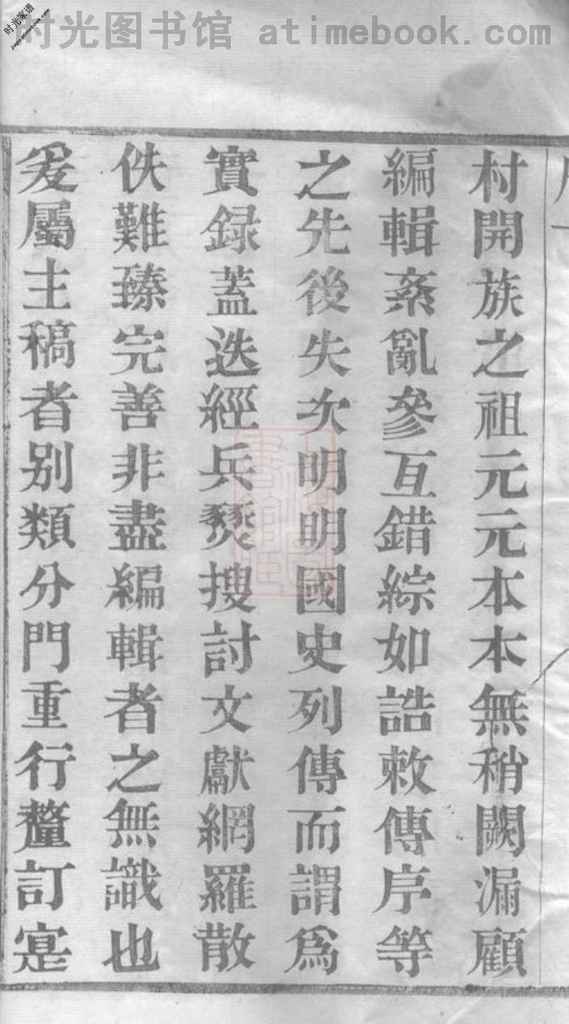 时光图书馆 atimebook.com
村開族之祖元元本本無稍闕漏顧
編輯紊亂參互錯綜如誥敕傳序等
之先後失次明明國史列傳而謂爲
實録蓋迭經兵燹搜討文獻網羅散
佚難臻完善非盡編輯者之無識也
爰屬主稿者别類分門重行釐訂寔